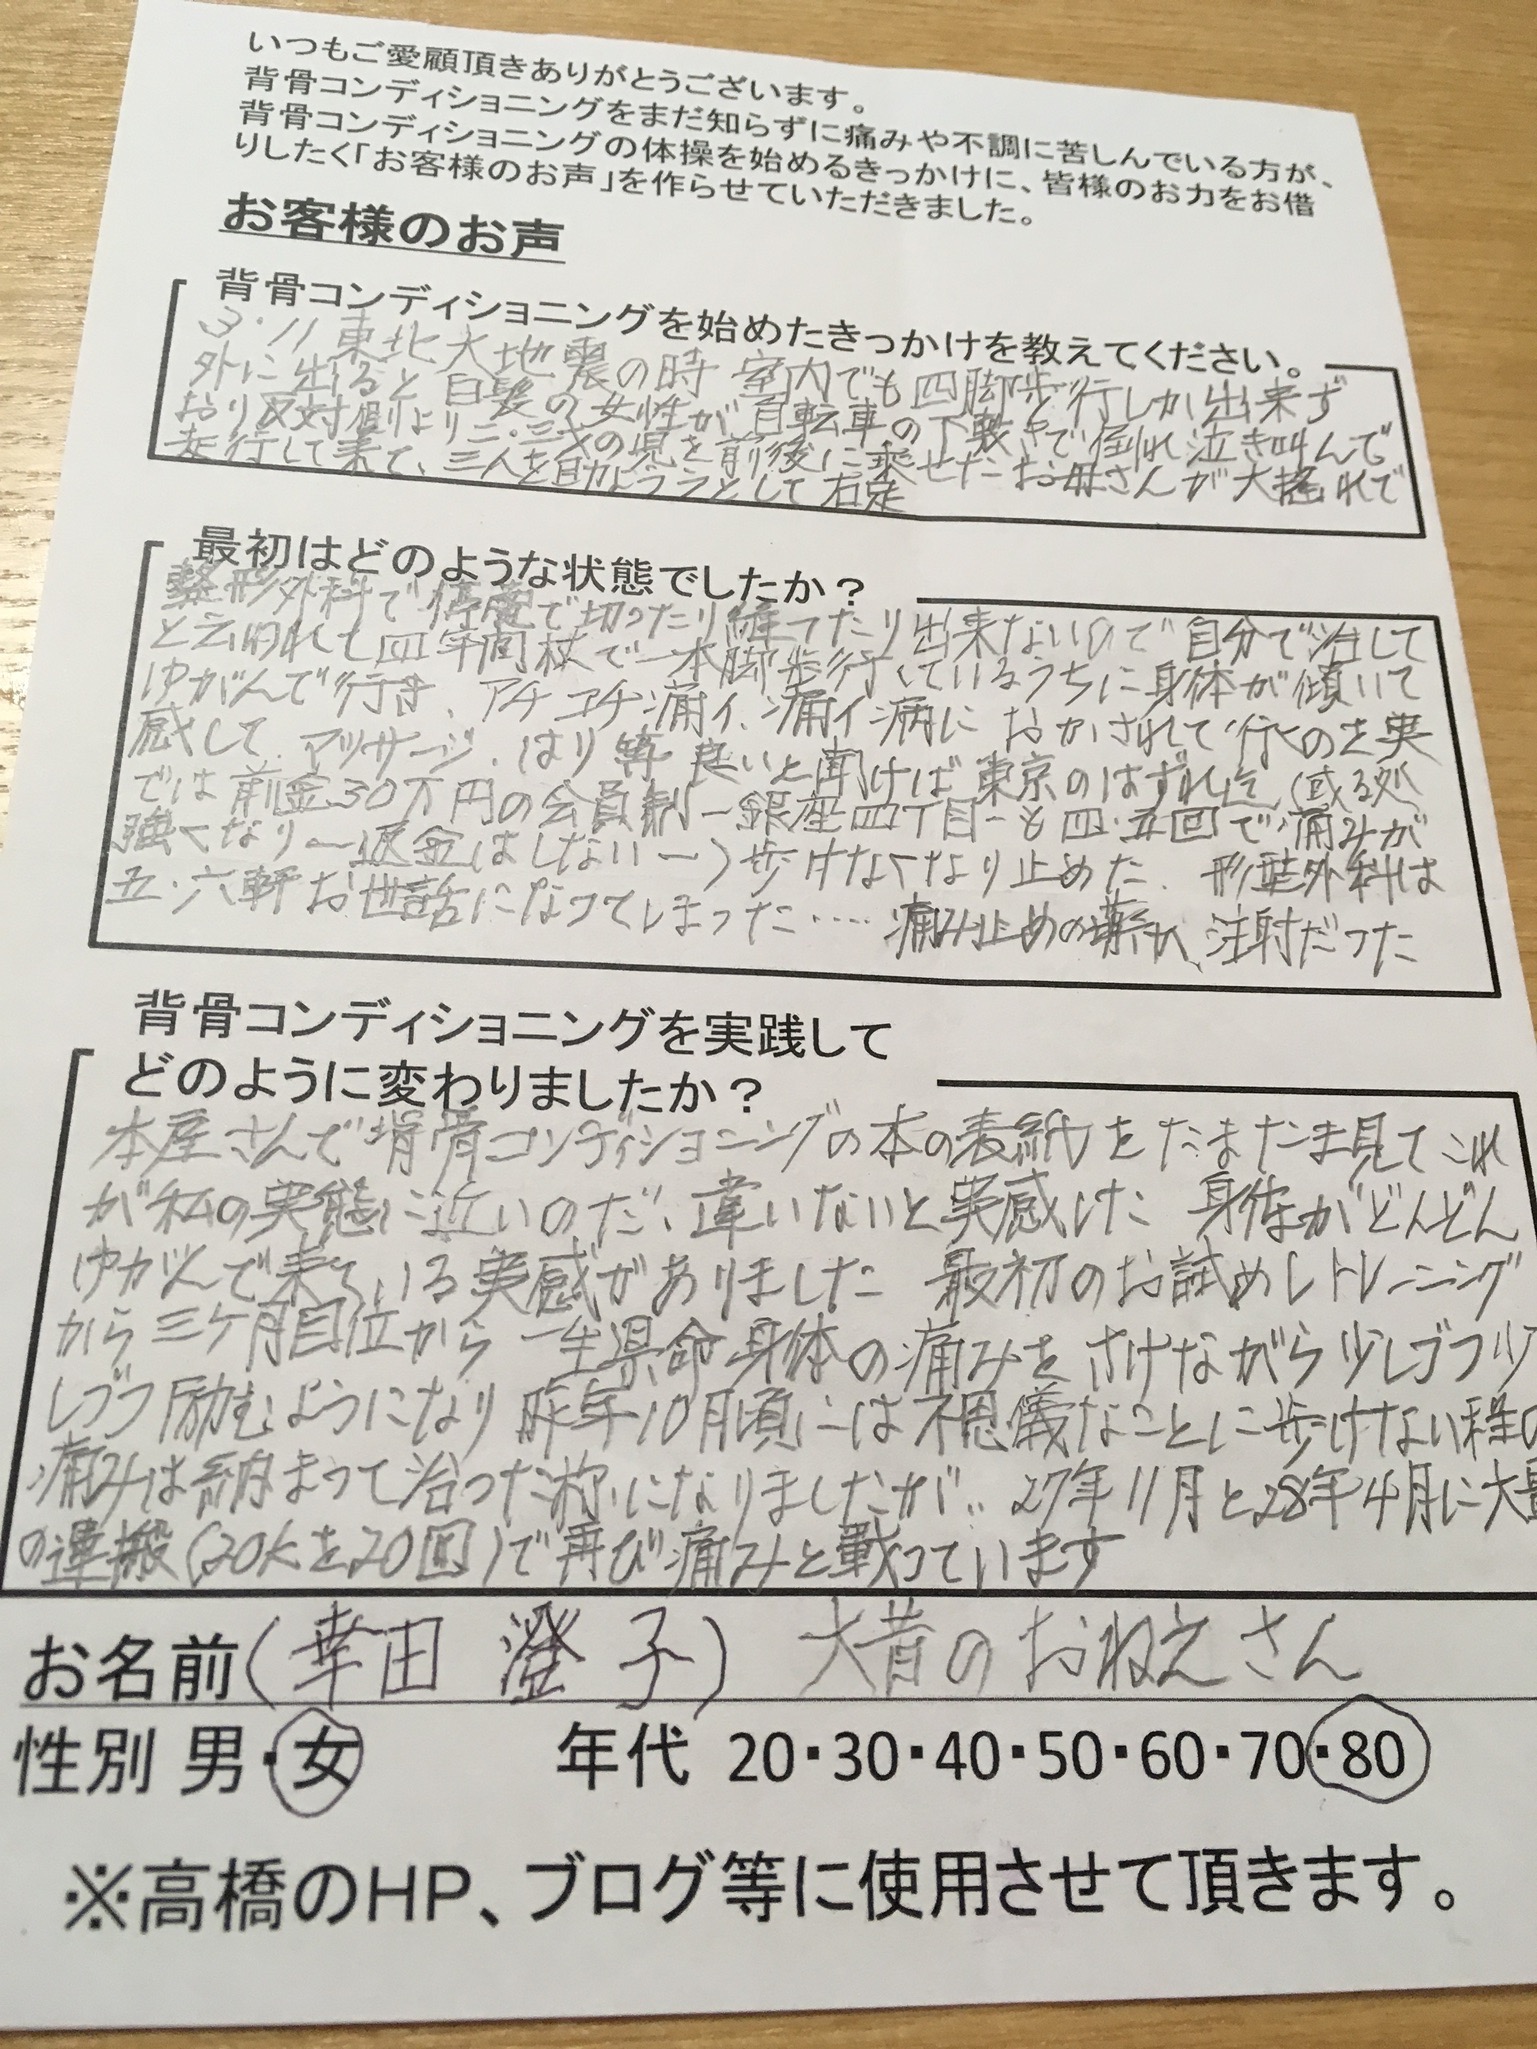 いつもご愛顧頂きありがとうございます。
背骨コンディショニングをまだ知らずに痛みや不調に苦しんでいる方が、
背骨コンディショニングの体操を始めるきっかけに、皆様のお力をお借
りしたく「お客様のお声」を作らせていただきました。
お客様のお声
背骨コンディショニングを始めたきっかけを教えてください。
3・11東北大地震の時 室内でも四脚歩行しか出来ず
外に出ると白髪の女性が自転車の下敷きで倒れ泣き叫んで
おり反対側より二・三才の児を前後に乗せたお母さんが大揺れで
走行して来て、三人を助けようとして右足
最初はどのような状態でしたか?
整形外科で 切ったり縫ったり出来ないので自分で治して
と云われて四年間杖で一本脚歩行しているうちに身体が傾いて
ゆがんで行き、アチコチ痛イ、痛イ病におかされて行くのを実
感して、マッサージ、はり等良いと聞けば東京のはずれ迄、(或る処
では前金30万円の会員制ー銀座四丁目ーも四・五回で痛みが
強くなりー返金はしないー)歩けなくなり止めた、形整外科は
五・六軒お世話になってしまった‥‥痛み止めの薬か、注射だった
背骨コンディショニングを実践して
どのように変わりましたか?
本屋さんで背骨コンディショニングの本の表紙をたまたま見てこれ
が私の実態に近いのだ、違いないと実感した 身体がどんどん
ゆがんで来ている実感がありました 最初のお試めしトレーニング
から三ケ月目位から一生県命身体の痛みをさけながら少しづつ少
しづつ励むようになり昨年10月頃には不思儀なことに歩けない程の
痛みは納まって治った様になりましたが‥27年11月と28年4月に大量
の運搬(20Kを20回)で再び痛みと戦っています
お名前(幸田 澄子) 大昔のおねえさん
性別 男・女 年代 20・30・40・50・60・70・80
※高橋のHP、ブログ等に使用させて頂きます。